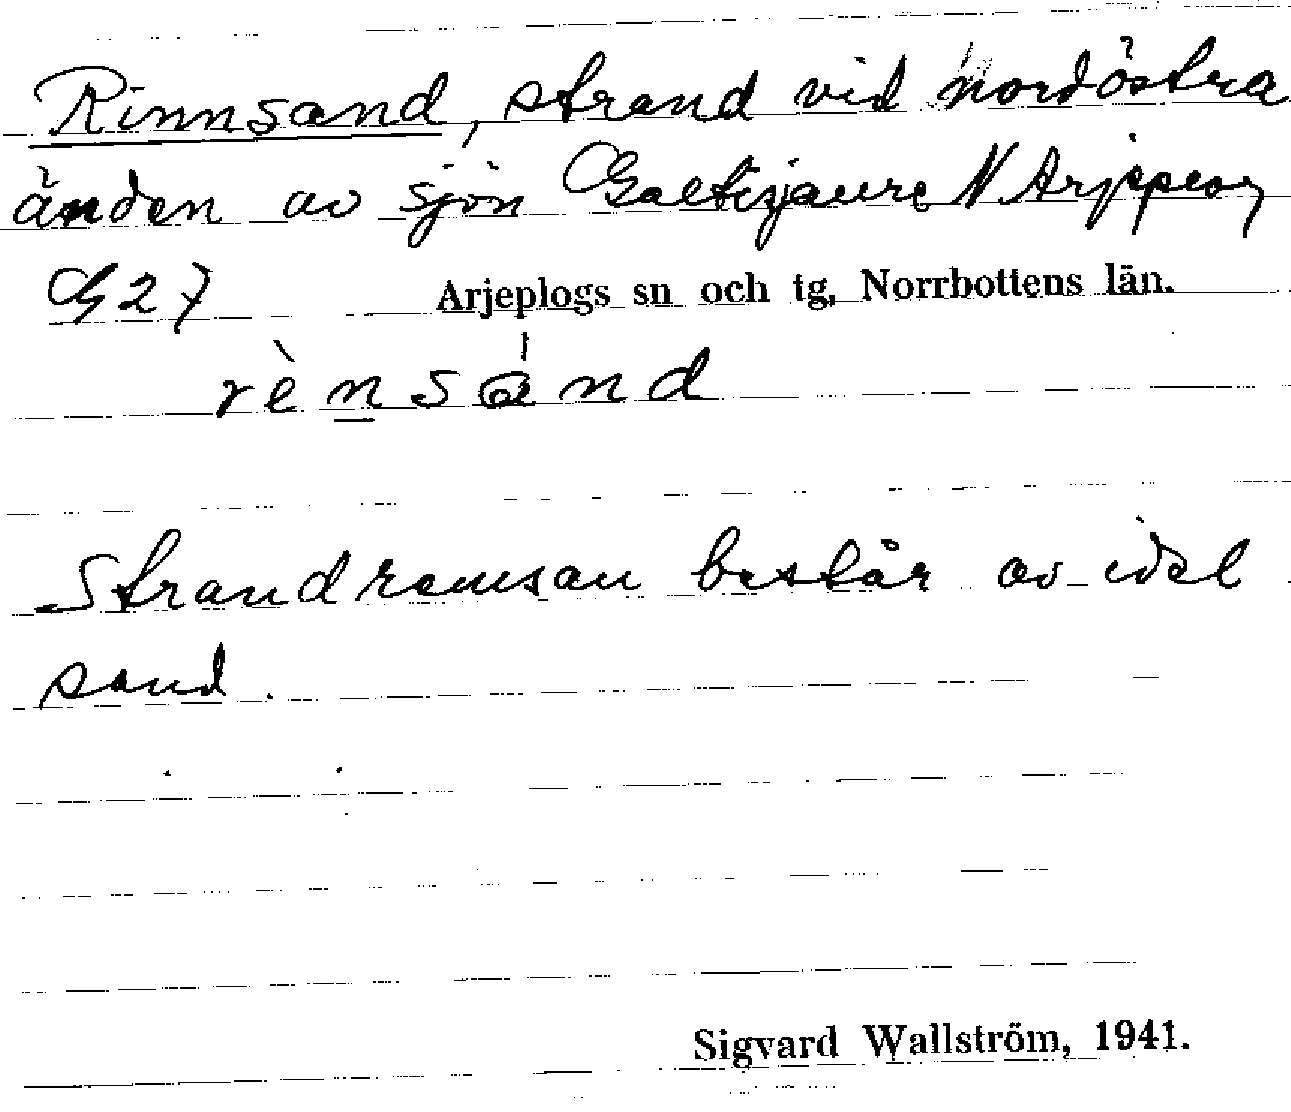 Rinnsand, strand vid nordöstra
änden av sjön Galtisjaure N Arjeplog
G 27 Arjeplogs sn och tg, Norrbottens län.
rènsand
Strandremsan består av idel
sand.
Sigvard Wallström, 1941.